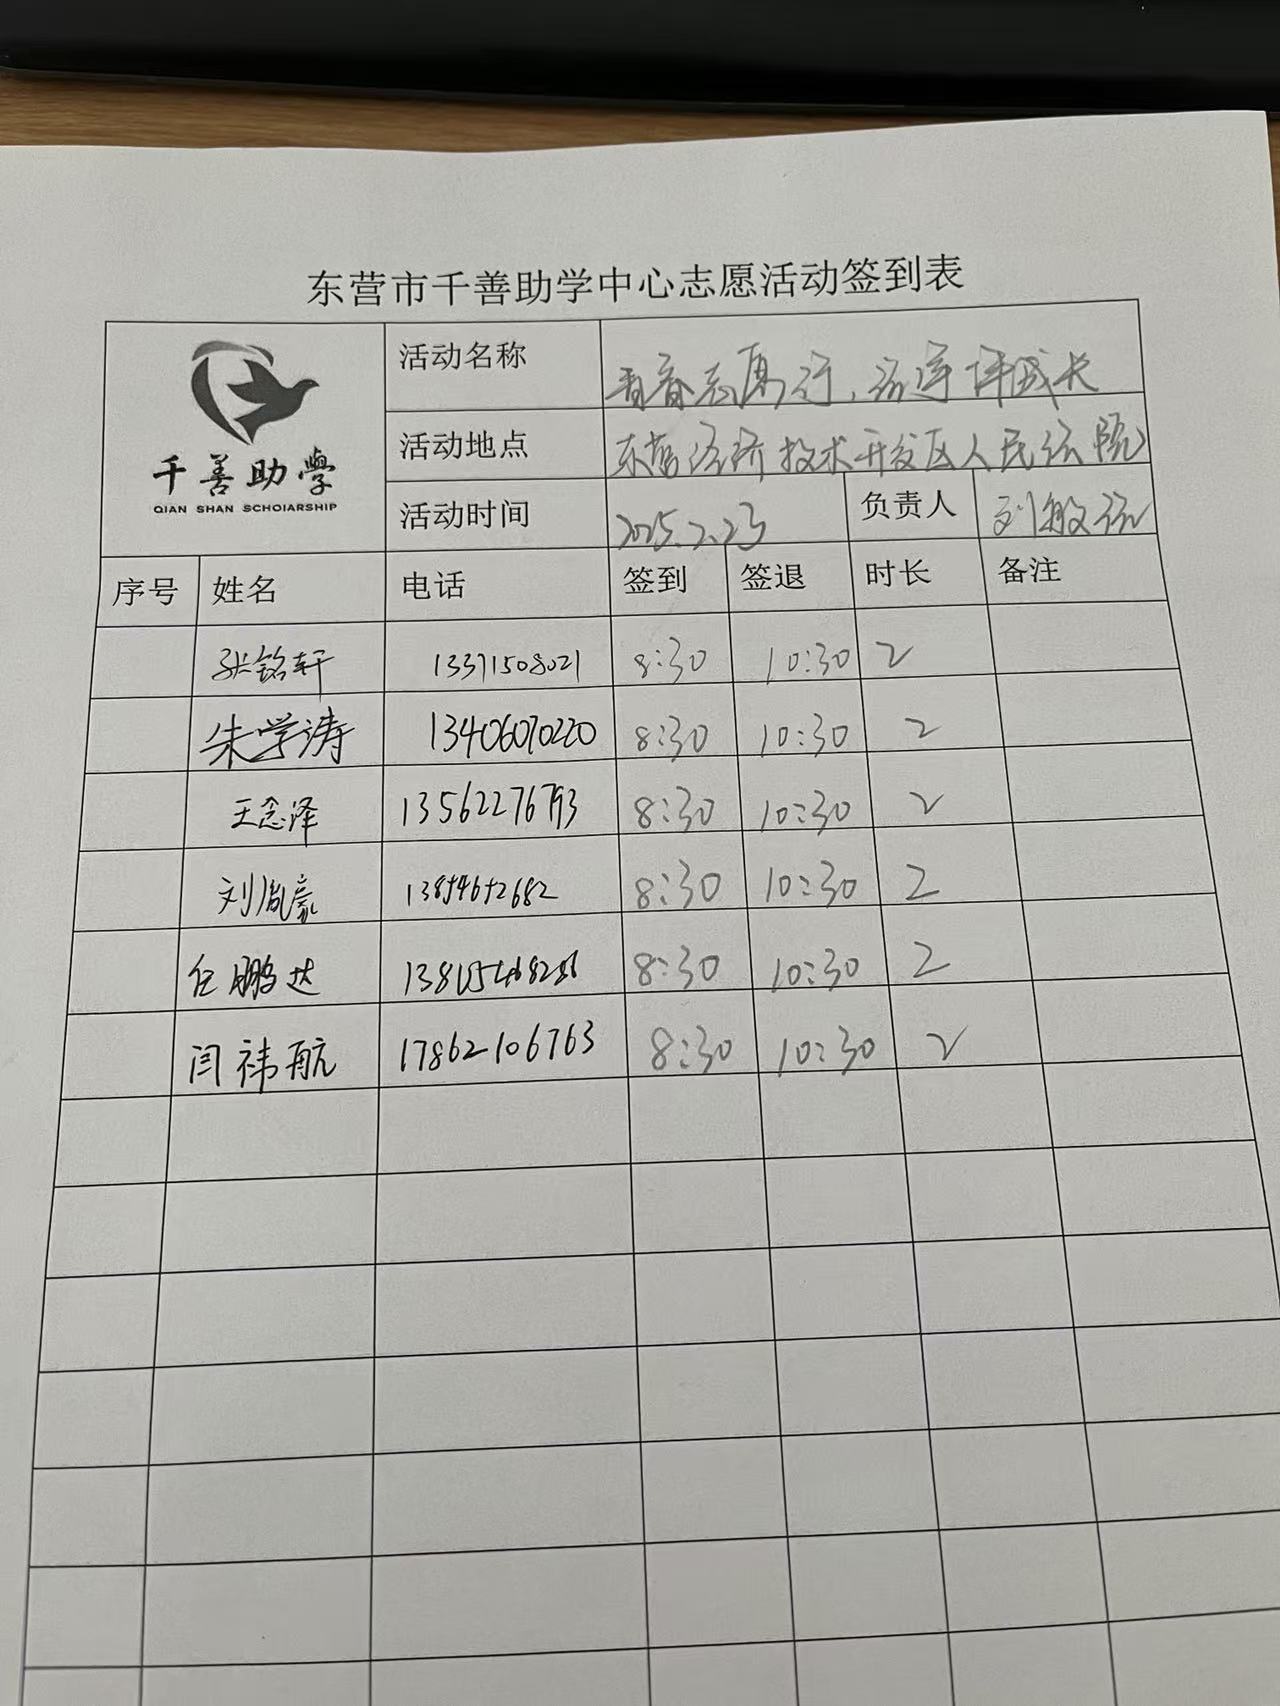 东营市千善助学中心志愿活动签到表
千善助學
QIAN SHAN SCHOIARSHIP
活动名称 青春志愿行,法连伴成长
活动地点 东营经济技术开发区人民法院
活动时间 2025.2.23 负责人 刘敏
序号 姓名 电话 签到 签退 时长 备注
张铭轩 13371508021 8:30 10:30 2
朱学涛 13406070220 8:30 10:30 2
王念泽 13562276793 8:30 10:30 2
刘胤豪 13854652682 8:30 10:30 2
任鹏达 8:30 10:30 2
闫祎航 17862106763 8:30 10:30 2